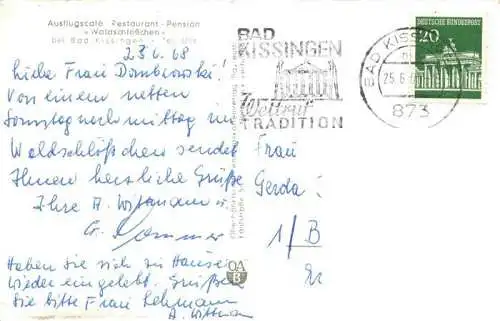 Ausflugscafé Restaurant-Pension
»Waldschlößchen«
bei Bad Kissingen
23.6.68
Liebe Frau Dombrowski!
Von einem netten
Sonntagnachmittag im
Waldschlößchen sendet
Ihnen herzliche Grüße
Ihre A. Wittmann u
G. Sommer
Haben Sie sich zu Hause
wieder eingelebt. Grüßen
Sie bitte Frau Lehmann
A. Wittman
BAD
KISSINGEN
Weltruf
TRADITION
BAD KISSI
25.6
873
20
DEUTSCHE BUNDESPOST
OA
B
Frau
Gerda
1/B